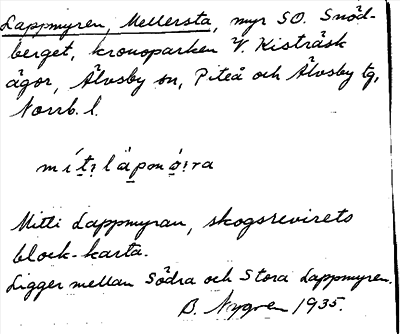 Lappmyren, Mellersta, myr SO. Snöd-
berget, kronoparken V. Kisträsk
ägor, Älvsby sn, Piteå och Älvsby tg,
Norrb. l.
Mitti Lappmyran, skogsrevirets
block-karta.
Ligger mellan Södra och Stora Lappmyren.
B. Nygren 1935.